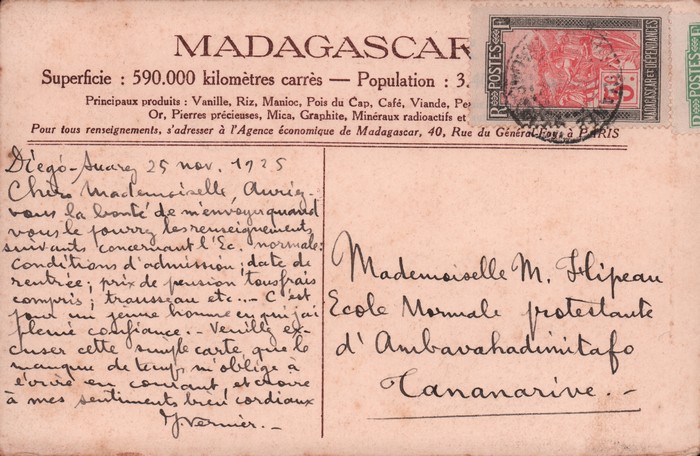 MADAGASCAR
Superficie : 590.000 kilomètres carrés — Population : 3.
Principaux produits : Vanille, Riz, Manioc, Pois du Cap, Café, Viande,
Or, Pierres précieuses, Mica, Graphite, Minéraux radioactifs et
Pour tous renseignements, s'adresser à l'Agence économique de Madagascar, 40, Rue du Général-Foys à PARIS
POSTES
RF
5c
MADAGASCAR ET DÉPENDANCES
Diégo-Suarez 25 nov. 1925
Chère Mademoiselle, Auriez-
vous la bonté de m'envoyer quand
vous le pourrez les renseignements
suivants concernant l'Ec. normale:
Conditions d'admission; date de
rentrée; prix de pension tous frais
compris; trousseau etc... - C'est
pour un jeune homme en qui j'ai
pleine confiance. - Veuillez ex-
cuser cette simple carte, que le
manque de temps m'oblige à
écrire en courant, et croire
à mes sentiments bien cordiaux
Vernier. -
Mademoiselle M. Flipeau
Ecole Normale protestante
d'Ambavahadimitafo
Tananarive. -